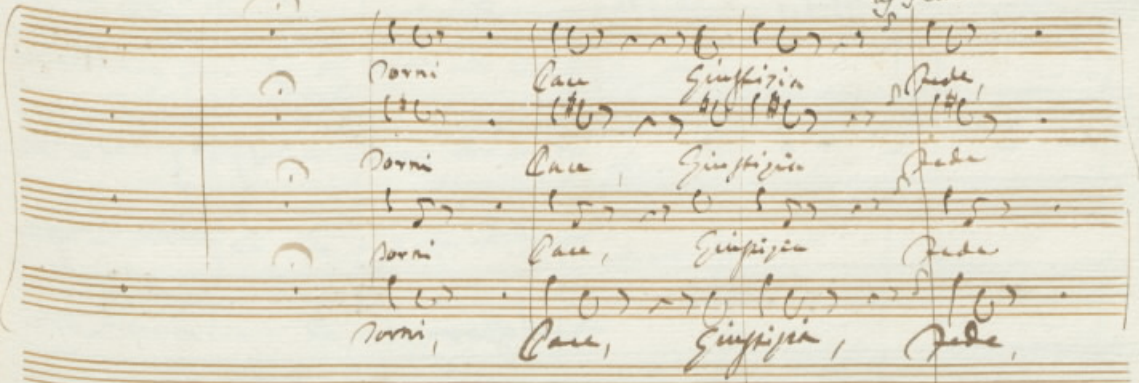 Torni Pace Giustizia fede,
Torni Pace, Giustizia fede
Torni Pace, Giustizia fede
Torni, Pace, Giustizia, fede,